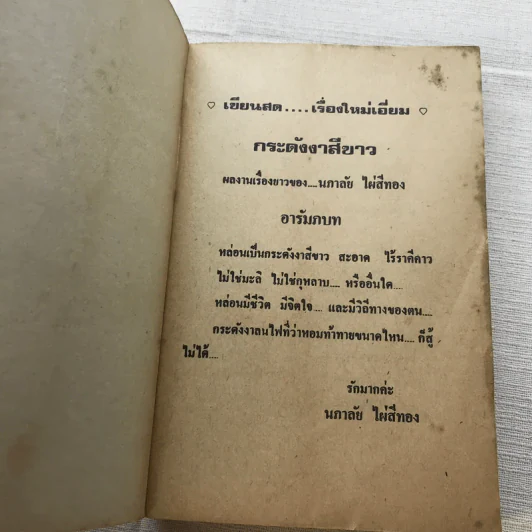 ♡ เขียนสด....เรื่องใหม่เอี่ยม ♡
กระดังงาสีขาว
ผลงานเรื่องยาวของ....นภาลัย ไผ่สีทอง
อารัมภบท
หล่อนเป็นกระดังงาสีขาว สะอาด ไร้ราคีคาว
ไม่ใช่มะลิ ไม่ใช่กุหลาบ.... หรืออื่นใด....
หล่อนมีชีวิต มีจิตใจ.... และมีวิถีทางของตน....
กระดังงาลนไฟที่ว่าหอมท้าทายขนาดไหน.... ก็สู้
ไม่ได้....
รักมากค่ะ
นภาลัย ไผ่สีทอง